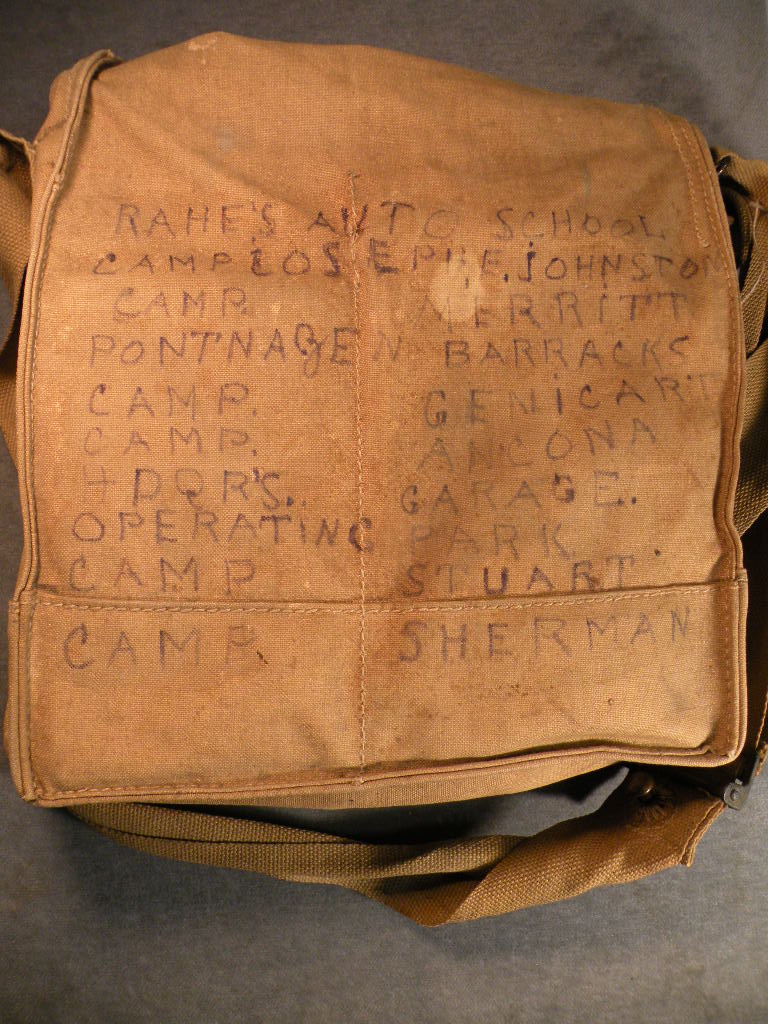 RAHE'S AUTO SCHOOL
CAMP JOSEPH E. JOHNSTON
CAMP. MERRITT
PONTNAGEN BARRACKS
CAMP. GENICART
CAMP. ANCONA
HDQRS. GARAGE.
OPERATING PARK.
CAMP STUART.
CAMP. SHERMAN